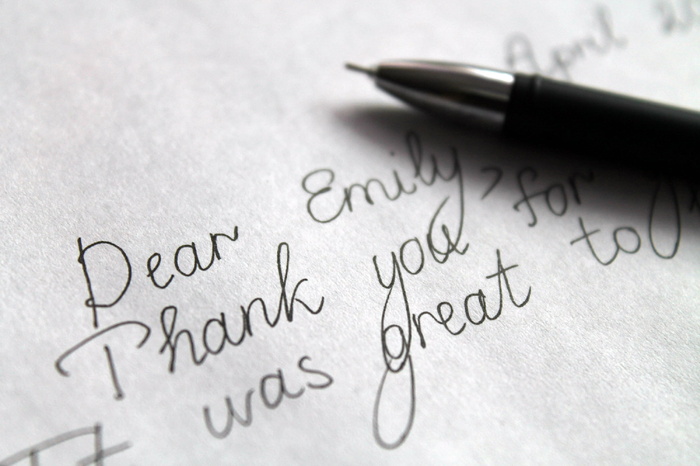 April
Dear Emily,
Thank you for
It was great to